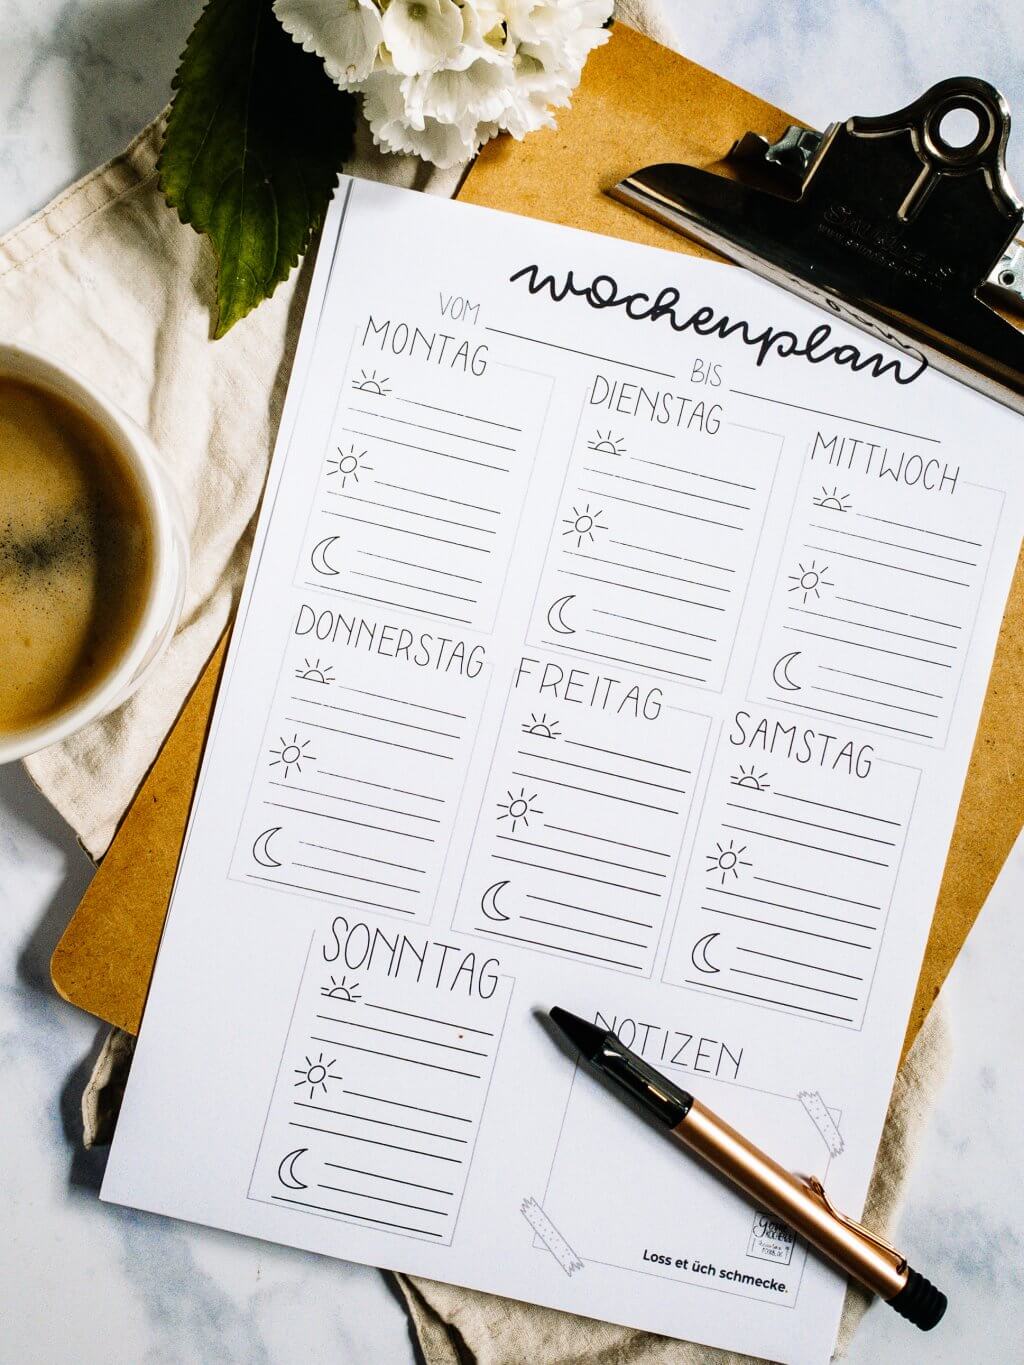 wochenplan
VOM BIS
MONTAG
DIENSTAG
MITTWOCH
DONNERSTAG
FREITAG
SAMSTAG
SONNTAG
NOTIZEN
Loss et üch schmecke.